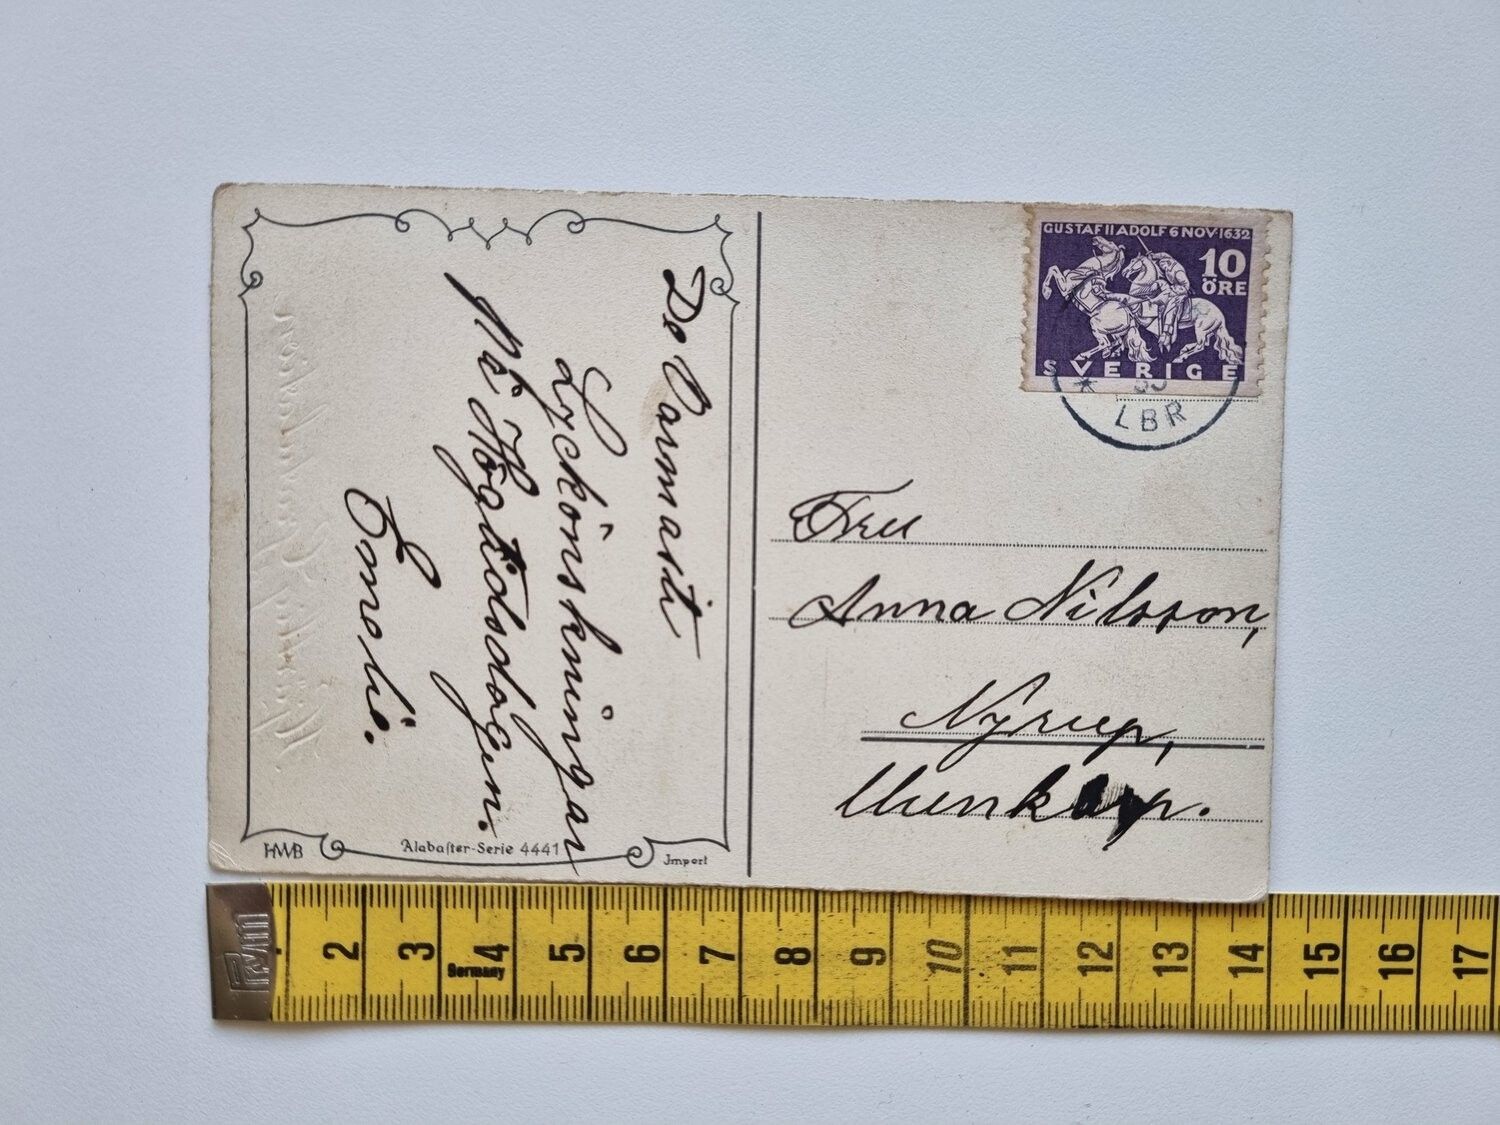 De Varmasti
Lyckönskningar
På Högtidsdagen.
Emeli.
HWB
Alabaster-Serie 4441
Import
GUSTAF II ADOLF 6 NOV·1632
10
ÖRE
SVERIGE
LBR
Fru
Anna Nilsson,
Nyrup,
Munkarp.
Prym
Germany
2 3 4 5 6 7 8 9 10 11 12 13 14 15 16 17